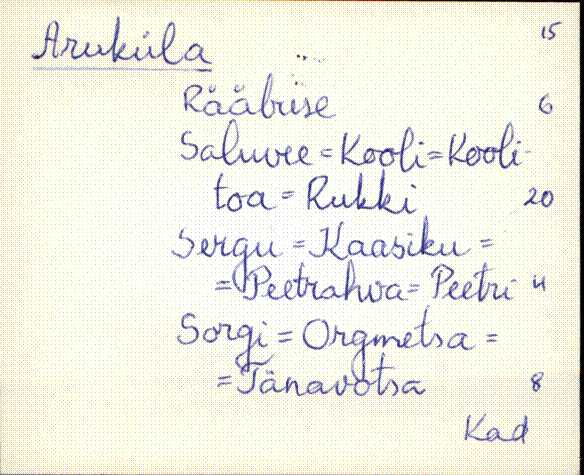 Aruküla 15
Rääbuse 6
Saluvee = Kooli = Kooli-
toa = Rukki 20
Sergu = Kaasiku =
= Peetrahva = Peetri 4
Sorgi = Orgmetsa =
= Tänavotsa 8
Kad